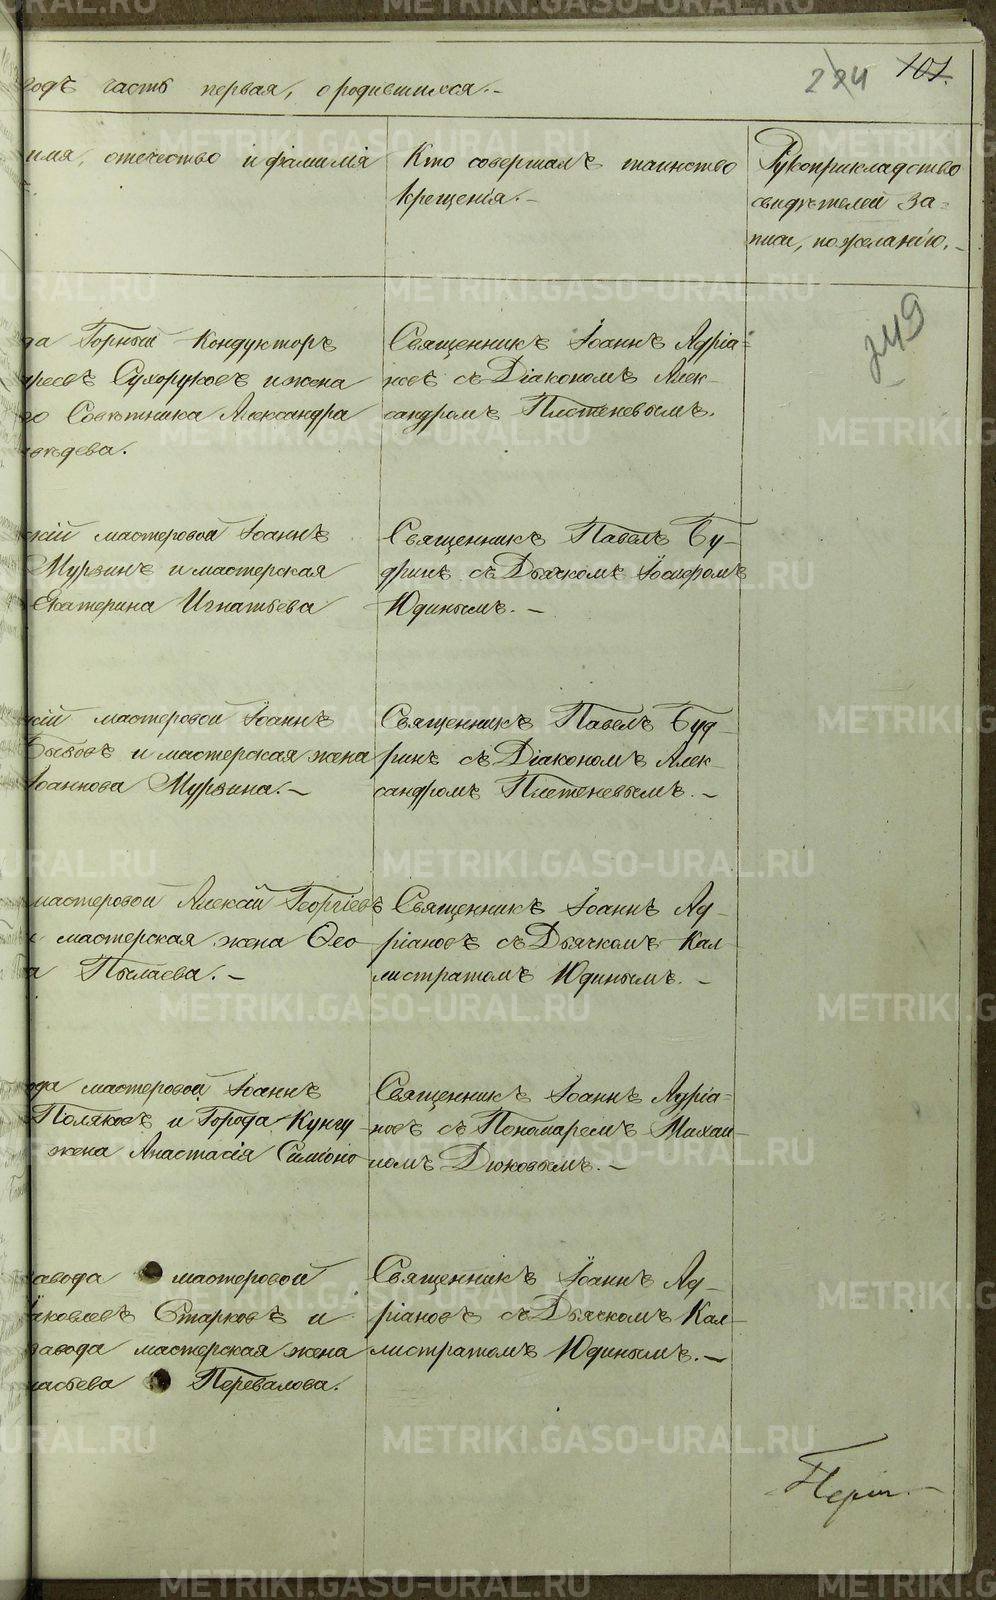 годъ часть первая, о родившихся.-
224
101.
имя, отечество и фамилія
Кто совершалъ таинство
крещенія.-
Рукоприкладство
свидѣтелей за-
писи, по желанію.-
249
да Горный Кондукторъ
Сухоруковъ и жена
го Совѣтника Александра
ѣдева.
Священникъ Іоаннъ Адріа-
новъ съ Діакономъ Алек-
сандромъ Плетеневымъ.
скій мастеровой Іоаннъ
Мурзинъ и мастерская
Екатерина Игнатьева
Священникъ Павелъ Бу-
дринъ съ Дьячкомъ Іосифомъ
Юдинымъ.-
кій мастеровой Іоаннъ
Бывовъ и мастерская жена
Іоаннова Мурзина.-
Священникъ Павелъ Буд-
ринъ съ Діакономъ Алек-
сандромъ Плетеневымъ.-
мастеровой Алексій Георгіевъ
и мастерская жена Ѳео
а Пылаева.-
Священникъ Іоаннъ Ад-
ріановъ съ Дьячкомъ Кал
листратомъ Юдинымъ.-
ода мастеровой Іоаннъ
Поляковъ и Города Кунгу-
жена Анастасія Симіоно
Священникъ Іоаннъ Адріа-
новъ съ Пономаремъ Михаи-
ломъ Дюковымъ.-
завода мастеровой
Яковлевъ Старковъ и
завода мастерская жена
насьева Перевалова.
Священникъ Іоаннъ Ад-
ріановъ съ Дьячкомъ Кал-
листратомъ Юдинымъ.-
METRIKI.GASO-URAL.RU